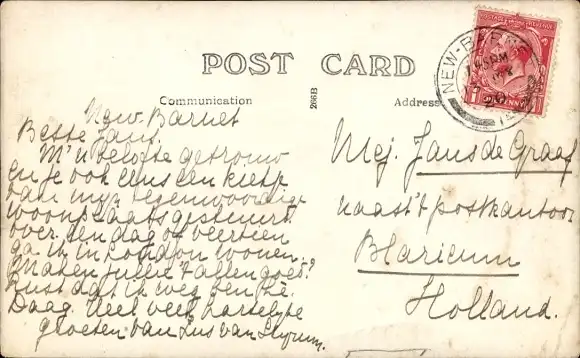 POST CARD
Communication
Address
266B
NEW-BARNET
New-Barnet
Beste Jans,
M'n belofte getrouw
en je ook eens een kiekje
van mijn tegenwoordige
woonplaats gestuurd.
over een dag of veertien
ga ik in London wonen.
Maken jullie 't allen goed?
Juist dat ik weg ben hè.
Daag. Veel veel hartelijke
groeten van Zus van
Mej. Jans de Graaf
naast 't postkantoor
Blaricum
Holland.